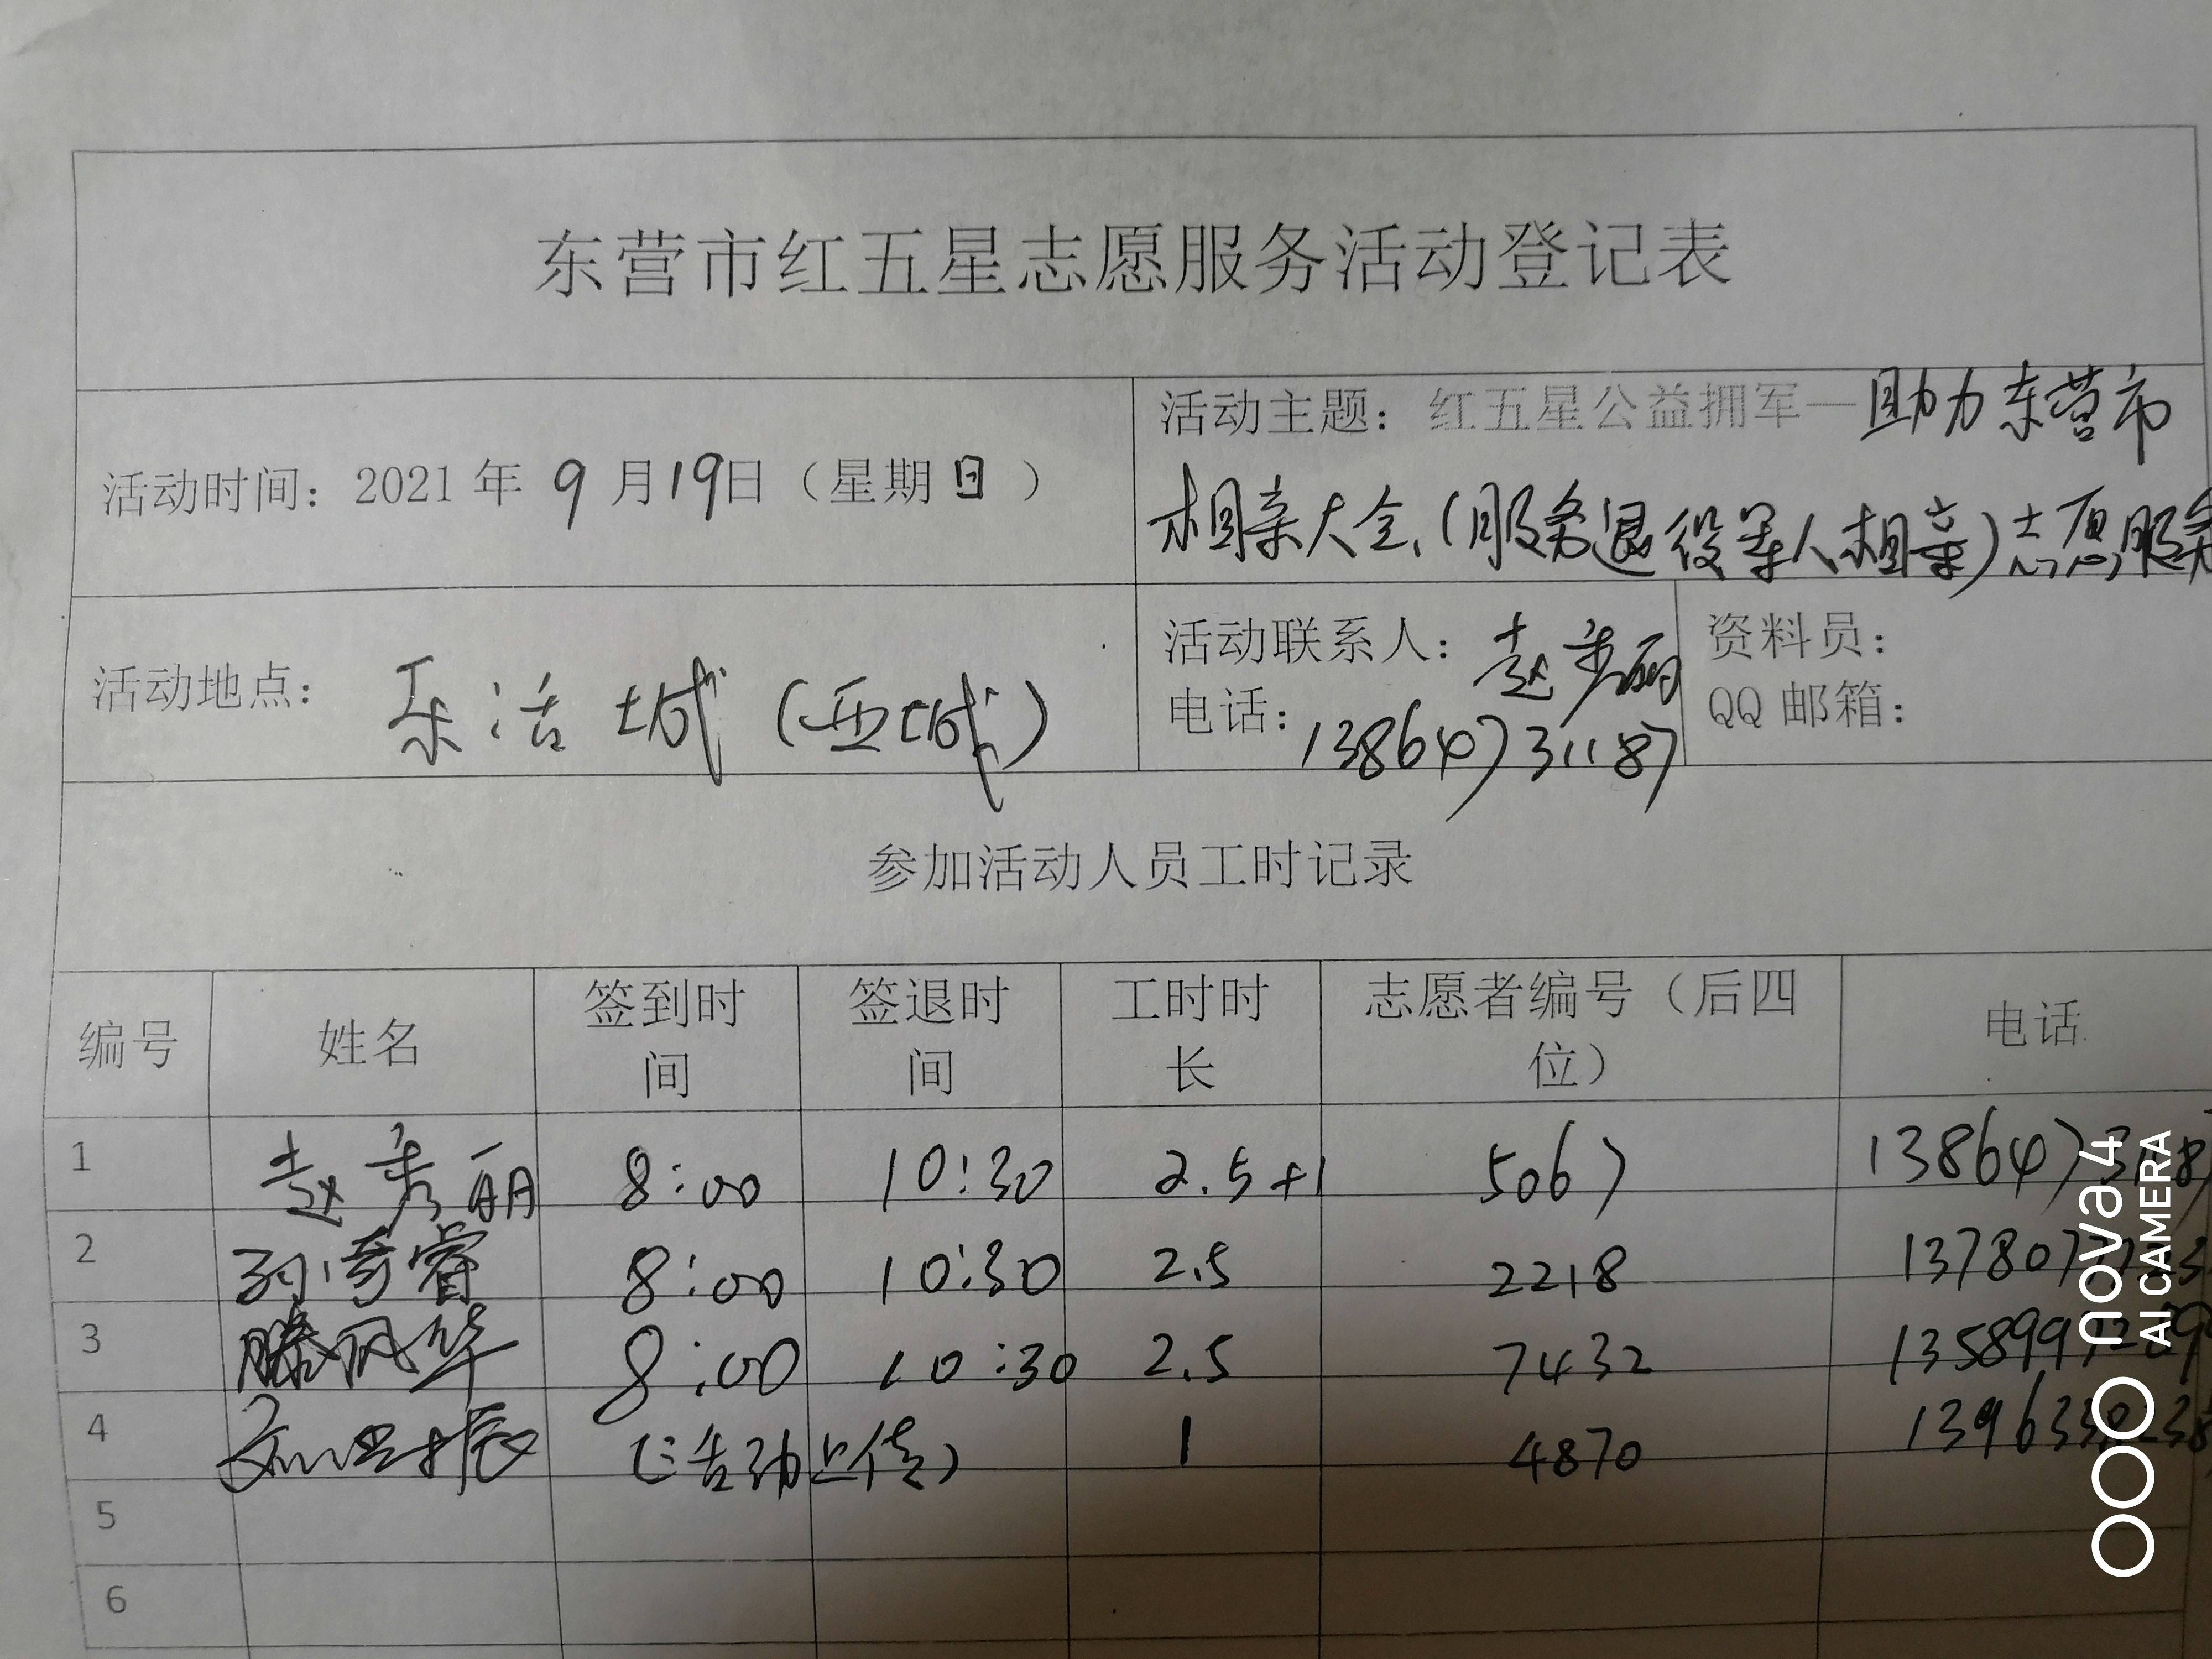 东营市红五星志愿服务活动登记表
活动时间：2021年 9月19日（星期日）
活动主题：红五星公益拥军—助力东营市
相亲大会（服务退役军人相亲）志愿服务
活动地点：乐活城（西城）
活动联系人：赵秀丽
电话：13864731187
资料员：
QQ邮箱：
参加活动人员工时记录
编号 姓名 签到时间 签退时间 工时时长 志愿者编号（后四位） 电话
1 赵秀丽 8:00 10:30 2.5+1 5067
2 孙琦睿 8:00 10:30 2.5 2218
3 滕风华 8:00 10:30 2.5 7432
4 （活动上传） 1 4870
5
6
nova 4
AI CAMERA